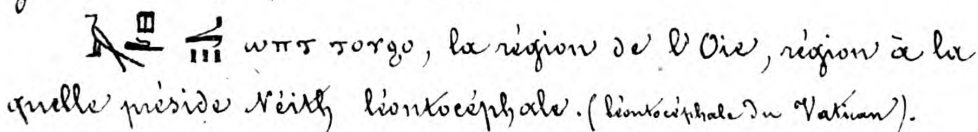 ⲱⲡⲧ ⲧⲟⲩϩⲟ, la région de l'Oie, région à la
quelle préside Néith léontocéphale. (léontocéphale du Vatican).